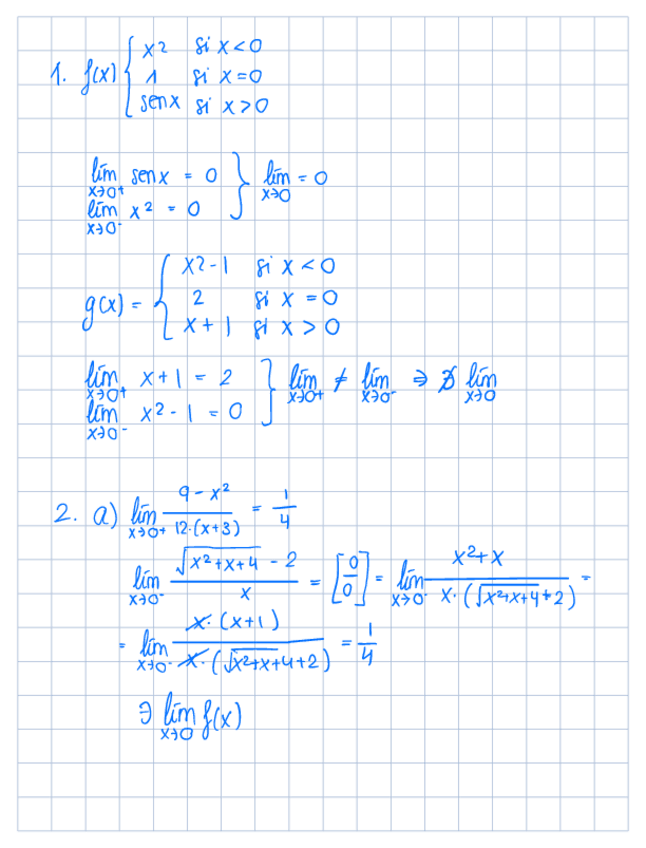 1. f(x) { x² si x < 0
1 si x = 0
sen x si x > 0
lím x→0⁺ sen x = 0 } lím x→0 = 0
lím x→0⁻ x² = 0
g(x) = { x² - 1 si x < 0
2 si x = 0
x + 1 si x > 0
lím x→0⁺ x + 1 = 2 } lím x→0⁺ ≠ lím x→0⁻ ⇒ ∄ lím x→0
lím x→0⁻ x² - 1 = 0
2. a) lím x→0⁺ (9 - x²)/(12·(x+3)) = 1/4
lím x→0⁻ (√(x²+x+4) - 2)/x = [0/0] = lím x→0⁻ (x²+x)/(x·(√(x²+x+4)+2)) =
= lím x→0⁻ (x·(x+1))/(x·(√(x²+x+4)+2)) = 1/4
∃ lím x→0 f(x)